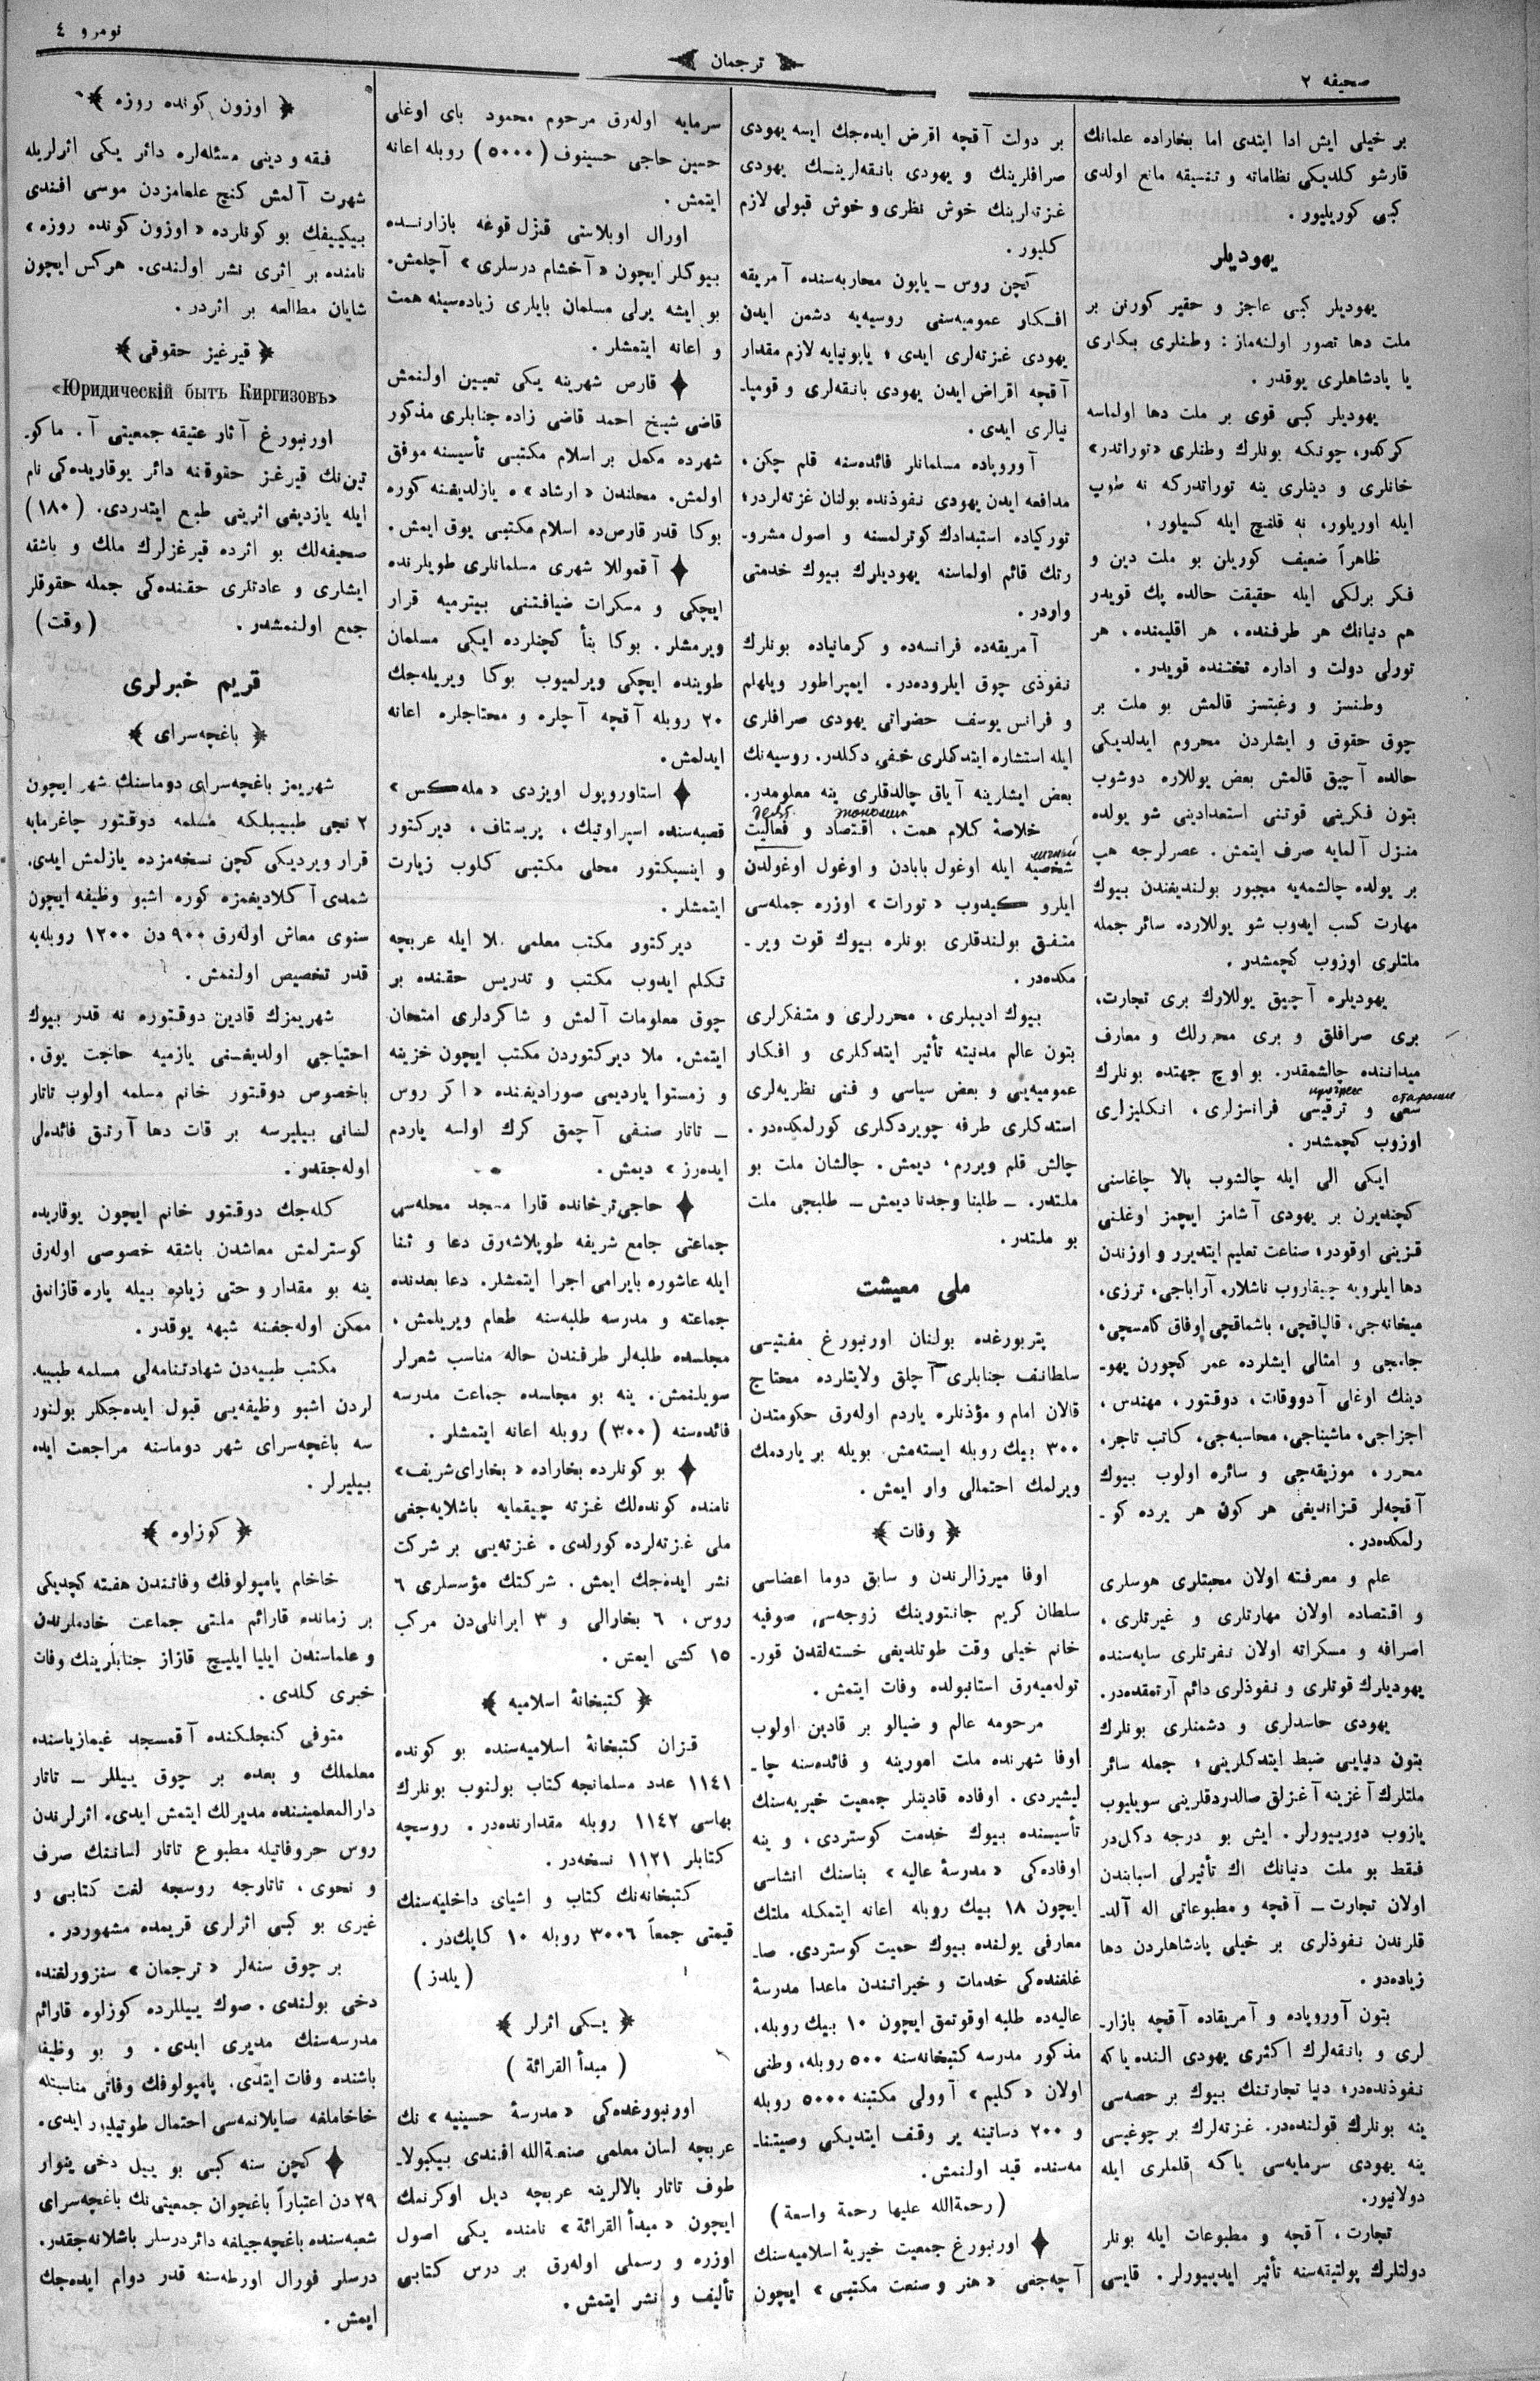 صحیفه ٢
ترجمان
نومرو ٤
بر خیلی ایش ادا ایتدی اما بخاراده علمانك
قارشو كلدیكی نظاماته و تنسیقه مانع اولدی
كبی كوریلیور.
یهودیلر
یهودیلر كبی عاجز و حقیر كورنن بر
ملت دها تصور اولنه‌ماز: وطنلری یكاری
یا پادشاهلری یوقدر.
یهودیلر كبی قوی بر ملت دها اولماسه
كركدر، چونكه بونلرك وطنلری «توراتدر»
خانلری و دینلری ینه توراتدركه نه طوپ
ایله اوریلور، نه قلنج ایله كسیلور.
ظاهراً ضعیف كوریلن بو ملت دین و
فكر برلكی ایله حقیقت حالده پك قویدر
هم دنیانك هر طرفنده، هر اقلیمنده، هر
تورلی دولت و اداره تختنده قویدر.
وطنسز و رغبتسز قالمش بو ملت بر
چوق حقوق و ایشلردن محروم ایدلدیكی
حالده آچیق قالمش بعض یوللاره دوشوب
بتون فكرینی قوتنی استعدادینی شو یولده
منزل آلمایه صرف ایتمش. عصرلرجه هپ
بر یولده چالشمه‌یه مجبور بولندیغندن بیوك
مهارت كسب ایدوب شو یوللارده سائر جمله
ملتلری اوزوب كچمشدر.
یهودیلره آچیق یوللارك بری تجارت،
بری صرافلق و بری محررلك و معارف
میداننده چالشمقدر. بو اوچ جهتده بونلرك
سعی و ترقیسی فرانسزلری، انكلیزلری
اوزوب كچمشدر.
ایكی الی ایله چالشوب بالا چاغاسنی
كچندیرن بر یهودی آشامز ایچمز اوغلنی
قزینی اوقودر؛ صناعت تعلیم ایتدیرر و اوزندن
دها ایلرویه چیقاروب ناشلار. آراباجی، ترزی،
میخانه‌جی، قالپاقچی، باشماقچی اوفاق كامسچی،
جامجی و امثالی ایشلرده عمر كچورن یهو-
دینك اوغلی آدووقات، دوقتور، مهندس،
اجزاجی، ماشیناجی، محاسبه‌جی، كاتب تاجر،
محرر، موزیقه‌جی و سائره اولوب بیوك
آقچه‌لر قزاندیغی هر كون هر یرده كو-
رلمكده‌در.
علم و معرفته اولان محبتلری هوسلری
و اقتصاده اولان مهارتلری و غیرتلری،
اصرافه و مسكراته اولان نفرتلری سایه‌سنده
یهودیلرك قوتلری و نفوذلری دائم آرتمقده‌در.
یهودی حاسدلری و دشمنلری بونلرك
بتون دنیایی ضبط ایتدكلرینی؛ جمله سائر
ملتلرك آغزینه آغزلق صالدردقلرینی سویلیوب
یازوب دورییورلر. ایش بو درجه دكل‌در
فقط بو ملت دنیانك اك تأثیرلی اسبابندن
اولان تجارت ــ آقچه و مطبوعاتی اله آلد-
قلرندن نفوذلری بر خیلی پادشاهلردن دها
زیاده‌در.
بتون آوروپاده و آمریقاده آقچه بازار-
لری و بانقه‌لرك اكثری یهودی النده یاكه
نفوذنده‌در؛ دنیا تجارتنك بیوك بر حصه‌سی
ینه بونلرك قولنده‌در. غزته‌لرك بر چوغیسی
ینه یهودی سرمایه‌سی یاكه قلملری ایله
دولانیور.
تجارت، آقچه و مطبوعات ایله بونلر
دولتلرك پولتیقه‌سنه تأثیر ایدییورلر. قایسی
بر دولت آقچه اقرض ایده‌جك ایسه یهودی
صرافلرینك و یهودی بانقه‌لرینك یهودی
غزته‌لرینك خوش نظری و خوش قبولی لازم
كلیور.
كچن روس ــ یاپون محاربه‌سنده آمریقه
افكار عمومیه‌سنی روسیه‌یه دشمن ایدن
یهودی غزته‌لری ایدی؛ یاپونیایه لازم مقدار
آقچه اقراض ایدن یهودی بانقه‌لری و قومپا-
نیالری ایدی.
آوروپاده مسلمانلر فائده‌سنه قلم چكن،
مدافعه ایدن یهودی نفوذنده بولنان غزته‌لردر؛
توركیاده استبدادك كوترلمسنه و اصول مشرو-
رتك قائم اولماسنه یهودیلرك بیوك خدمتی
واردر.
آمریقه‌ده فرانسه‌ده و كرمانیاده بونلرك
نفوذی چوق ایلروده‌در. ایمپراطور ویلهلم
و فرانس یوسف حضراتی یهودی صرافلری
ایله استشاره ایتدكلری خفی دكلدر. روسیه‌نك
بعض ایشلرینه آیاق چالدقلری ینه معلومدر.
خلاصهٔ كلام همت، اقتصاد و فعالیت
شخصیه ایله اوغول بابادن و اوغول اوغولدن
ایلرو كیدوب «تورات» اوزره جمله‌سی
متفق بولندقلری بونلره بیوك قوت ویر-
مكده‌در.
بیوك ادیبلری، محررلری و متفكرلری
بتون عالم مدنیته تأثیر ایتدكلری و افكار
عمومیه‌یی و بعض سیاسی و فنی نظریه‌لری
استدكلری طرفه چویردكلری كورلمكده‌در.
چالش قلم ویررم، دیمش. چالشان ملت بو
ملتدر. ــ طلبنا وجدنا دیمش ــ طلبجی ملت
بو ملتدر.
ملی معیشت
پتربورغده بولنان اورنبورغ مفتیسی
سلطانف جنابلری آچلق ولایتلرده محتاج
قالان امام و مؤذنلره یاردم اوله‌رق حكومتدن
٣٠٠ بیك روبله ایسته‌مش. بویله بر یاردمك
ویرلمك احتمالی وار ایمش.
وفات
اوفا میرزالرندن و سابق دوما اعضاسی
سلطان كریم جانتورینك زوجه‌سی صوفیه
خانم خیلی وقت طوتلدیغی خسته‌لقدن قور-
توله‌میه‌رق استانبولده وفات ایتمش.
مرحومه عالم و ضیالو بر قادین اولوب
اوفا شهرنده ملت امورینه و فائده‌سنه چا-
لیشیردی. اوفاده قادینلر جمعیت خیریه‌سنك
تأسیسنده بیوك خدمت كوستردی، و ینه
اوفاده‌كی «مدرسهٔ عالیه» بناسنك انشاسی
ایچون ١٨ بیك روبله اعانه ایتمكله ملتك
معارفی یولنده بیوك حمیت كوستردی. صا-
غلغنده‌كی خدمات و خیراتندن ماعدا مدرسهٔ
عالیه‌ده طلبه اوقوتمق ایچون ١٠ بیك روبله،
مذكور مدرسه كتبخانه‌سنه ٥٠٠ روبله، وطنی
اولان «كلیم» آوولی مكتبنه ٥٠٠٠ روبله
و ٢٠٠ دساتینه یر وقف ایتدیكی وصیتنا-
مه‌سنده قید اولنمش.
(رحمة‌الله علیها رحمة واسعة)
اورنبورغ جمعیت خیریهٔ اسلامیه‌سنك
آچه‌جغی «هنر و صنعت مكتبی» ایچون
سرمایه اوله‌رق مرحوم محمود بای اوغلی
حسین حاجی حسینوف (٥٠٠٠) روبله اعانه
ایتمش.
اورال اوبلاستی قزل قوغه بازارنده
بیوكلر ایچون «آخشام درسلری» آچلمش.
بو ایشه یرلی مسلمان بایلری زیاده‌سیله همت
و اعانه ایتمشلر.
قارص شهرینه یكی تعیین اولنمش
قاضی شیخ احمد قاضی زاده جنابلری مذكور
شهرده مكمل بر اسلام مكتبی تأسیسنه موفق
اولمش. محلندن «ارشاد» ه یازلدیغنه كوره
بوكا قدر قارص‌ده اسلام مكتبی یوق ایمش.
آقموللا شهری مسلمانلری طویلرنده
ایچكی و مسكرات ضیافتنی بیترمیه قرار
ویرمشلر. بوكا بنأ كچنلرده ایكی مسلمان
طوینده ایچكی ویرلمیوب بوكا ویریله‌جك
٢٠ روبله آقچه آچلره و محتاجلره اعانه
ایدلمش.
استاوروپول اویزدی «مله‌كس»
قصبه‌سنده اسپراوتیك، پریستاف، دیركتور
و اینسپكتور محلی مكتبی كلوب زیارت
ایتمشلر.
دیركتور مكتب معلمی ملا ایله عربچه
تكلم ایدوب مكتب و تدریس حقنده بر
چوق معلومات آلمش و شاكردلری امتحان
ایتمش. ملا دیركتوردن مكتب ایچون خزینه
و زمستوا یاردیمی صورادیغنده «اكر روس
ــ تاتار صنفی آچمق كرك اولسه یاردم
ایده‌رز» دیمش.
حاجی‌ترخانده قارا مسجد محله‌سی
جماعتی جامع شریفه طوپلاشه‌رق دعا و ثنا
ایله عاشوره بایرامی اجرا ایتمشلر. دعا بعدنده
جماعته و مدرسه طلبه‌سنه طعام ویریلمش،
مجلسده طلبه‌لر طرفندن حاله مناسب شعرلر
سویلنمش. ینه بو مجلسده جماعت مدرسه
فائده‌سنه (٣٠٠) روبله اعانه ایتمشلر.
بو كونلرده بخاراده «بخارای‌شریف»
نامنده كونده‌لك غزته چیقمایه باشلایه‌جغی
ملی غزته‌لرده كورلدی. غزته‌یی بر شركت
نشر ایده‌جك ایمش. شركتك مؤسسلری ٦
روس، ٦ بخارالی و ٣ ایرانلی‌دن مركب
١٥ كشی ایمش.
كتبخانهٔ اسلامیه
قزان كتبخانهٔ اسلامیه‌سنده بو كونده
١١٤١ عدد مسلمانجه كتاب بولنوب بونلرك
بهاسی ١١٤٢ روبله مقدارنده‌در. روسچه
كتابلر ١١٢١ نسخه‌در.
كتبخانه‌نك كتاب و اشیای داخلیه‌سنك
قیمتی جمعاً ٣٠٠٦ روبله ١٠ كاپك‌در.
(یلدز)
یكی اثرلر
(مبدأ القرائة)
اورنبورغده‌كی «مدرسهٔ حسینیه» نك
عربچه لسان معلمی صنعة‌الله افندی بیكبولا-
طوف تاتار بالالرینه عربچه دیل اوكرنمك
ایچون «مبدأ القرائة» نامنده یكی اصول
اوزره و رسملی اوله‌رق بر درس كتابی
تألیف و نشر ایتمش.
اوزون كونده روزه
فقه و دینی مسئله‌لره دائر یكی اثرلریله
شهرت آلمش كنج علمامزدن موسی افندی
بیكییفك بو كونلرده «اوزون كونده روزه»
نامنده بر اثری نشر اولندی. هركس ایچون
شایان مطالعه بر اثردر.
قیرغیز حقوقی
«Юридическій бытъ Киргизовъ»
اورنبورغ آثار عتیقه جمعیتی آ. ماكو-
تین‌نك قیرغز حقوقنه دائر یوقاریده‌كی نام
ایله یازدیغی اثرینی طبع ایتدردی. (١٨٠)
صحیفه‌لك بو اثرده قیرغزلرك ملك و باشقه
ایشلری و عادتلری حقنده‌كی جمله حقوقلر
جمع اولنمشدر. (وقت)
قریم خبرلری
باغچه‌سرای
شهریمز باغچه‌سرای دوماسنك شهر ایچون
٢ نجی طبیبلكه مسلمه دوقتور چاغرمایه
قرار ویردیكی كچن نسخه‌مزده یازلمش ایدی.
شمدی آكلادیغمزه كوره اشبو وظیفه ایچون
سنوی معاش اوله‌رق ٩٠٠ دن ١٢٠٠ روبله‌یه
قدر تخصیص اولنمش.
شهریمزك قادین دوقتوره نه قدر بیوك
احتیاجی اولدیغنی یازمیه حاجت یوق.
باخصوص دوقتور خانم مسلمه اولوب تاتار
لسانی بیلیرسه بر قات دها آرتق فائده‌لی
اوله‌جقدر.
كله‌جك دوقتور خانم ایچون یوقاریده
كوسترلمش معاشدن باشقه خصوصی اوله‌رق
ینه بو مقدار و حتی زیاده بیله پاره قازانمق
ممكن اوله‌جغنه شبهه یوقدر.
مكتب طبیه‌دن شهادتنامه‌لی مسلمه طبیبه-
لردن اشبو وظیفه‌یی قبول ایده‌جكلر بولنور
سه باغچه‌سرای شهر دوماسنه مراجعت ایده
بیلیرلر.
كوزلوه
خاخام پامپولوفك وفاتندن هفته كچدیكی
بر زمانده قارائم ملتی جماعت خادملرندن
و علماسندن ایلیا ایلییچ قازاز جنابلرینك وفات
خبری كلدی.
متوفی كنجلكنده آقمسجد غیمنازیاسنده
معلملك و بعده بر چوق ییللر ــ تاتار
دارالمعلمیننده مدیرلك ایتمش ایدی. اثرلرندن
روس حروفاتیله مطبوع تاتار لساننك صرف
و نحوی، تاتارجه روسچه لغت كتابی و
غیری بو كبی اثرلری قریمده مشهوردر.
بر چوق سنه‌لر «ترجمان» سنزورلغنده
دخی بولندی. صوك ییللرده كوزلوه قارائم
مدرسه‌سنك مدیری ایدی. و بو وظیفه
باشنده وفات ایتدی. پامپولوفك وفاتی مناسبتله
خاخاملغه صایلانمه‌سی احتمال طوتیلیور ایدی.
كچن سنه كبی بو ییل دخی ینوار
٢٩ دن اعتباراً باغچوان جمعیتی‌نك باغچه‌سرای
شعبه‌سنده باغچه‌جیلغه دائر درسلر باشلانه‌جقدر.
درسلر فورال اورطه‌سنه قدر دوام ایده‌جك
ایمش.